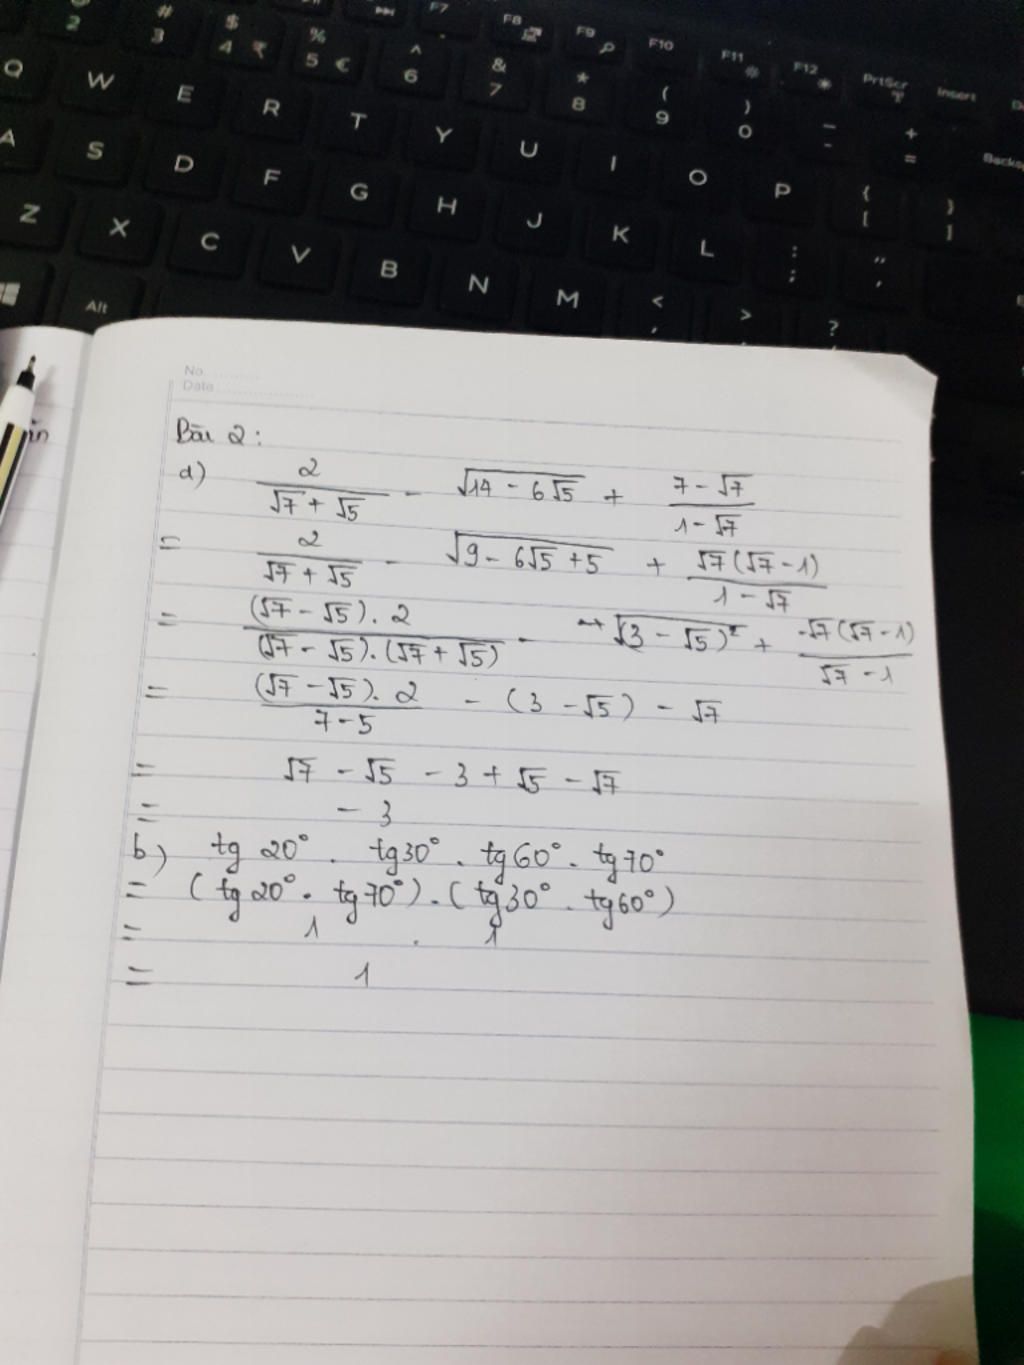 F7 F8 F9 F10 F11 F12 PrtScr Insert
2 # 3 $ 4 ₹ % 5 € ^ 6 & 7 * 8 ( 9 ) 0 _ - + =
Q W E R T Y U I O P { [ } ]
A S D F G H J K L : ; " '
Z X C V B N M < , > . ?
Alt
No. ..........
Date ....................
Bài 2:
a) 2/(√7 + √5) - √(14 - 6√5) + (7 - √7)/(1 - √7)
= 2/(√7 + √5) - √(9 - 6√5 + 5) + √7(√7 - 1)/(1 - √7)
= (√7 - √5). 2/((√7 - √5).(√7 + √5)) - √((3 - √5)²) + -√7(√7 - 1)/(√7 - 1)
= (√7 - √5). 2/(7 - 5) - (3 - √5) - √7
= √7 - √5 - 3 + √5 - √7
= - 3
b) tg 20° . tg30° . tg60° . tg70°
= (tg20° . tg70°) . (tg30° . tg60°)
= 1 . 1
= 1